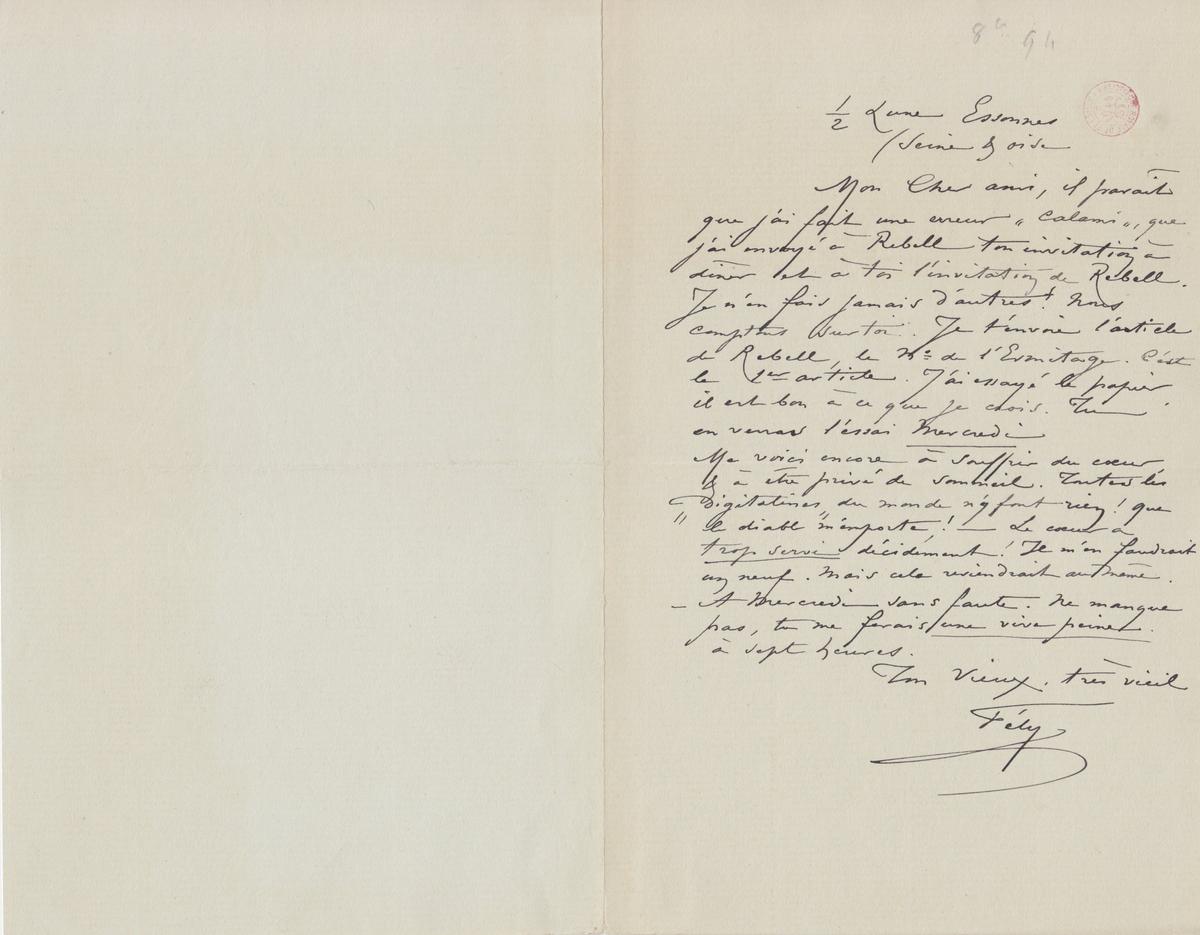 8bre 94
1/2 Lune Essonnes
/Seine & oise
Mon Cher ami, il paraît
que j'ai fait une erreur „ Calami „, que
j'ai envoyé à Rebell ton invitation à
dîner et à toi l'invitation de Rebell.
Je n'en fais jamais d'autres! Nous
comptons sur toi. Je t'envoie l'article
de Rebell, le No de l'Ermitage. C'est
le 1er article. J'ai essayé le papier
il est bon à ce que je crois. Tu
en verras l'essai Mercredi
Me voici encore à souffrir du cœur
& à être privé de sommeil. Toutes les
Digitalines du monde n'y font rien! que
" le diable m'emporte! — Le cœur a
trop servi décidément! Il m'en faudrait
un neuf. Mais cela reviendrait au même.
– A Mercredi sans faute. Ne manque
pas, tu me ferais une vive peine.
à sept heures.
Ton Vieux, très vieil
Fély